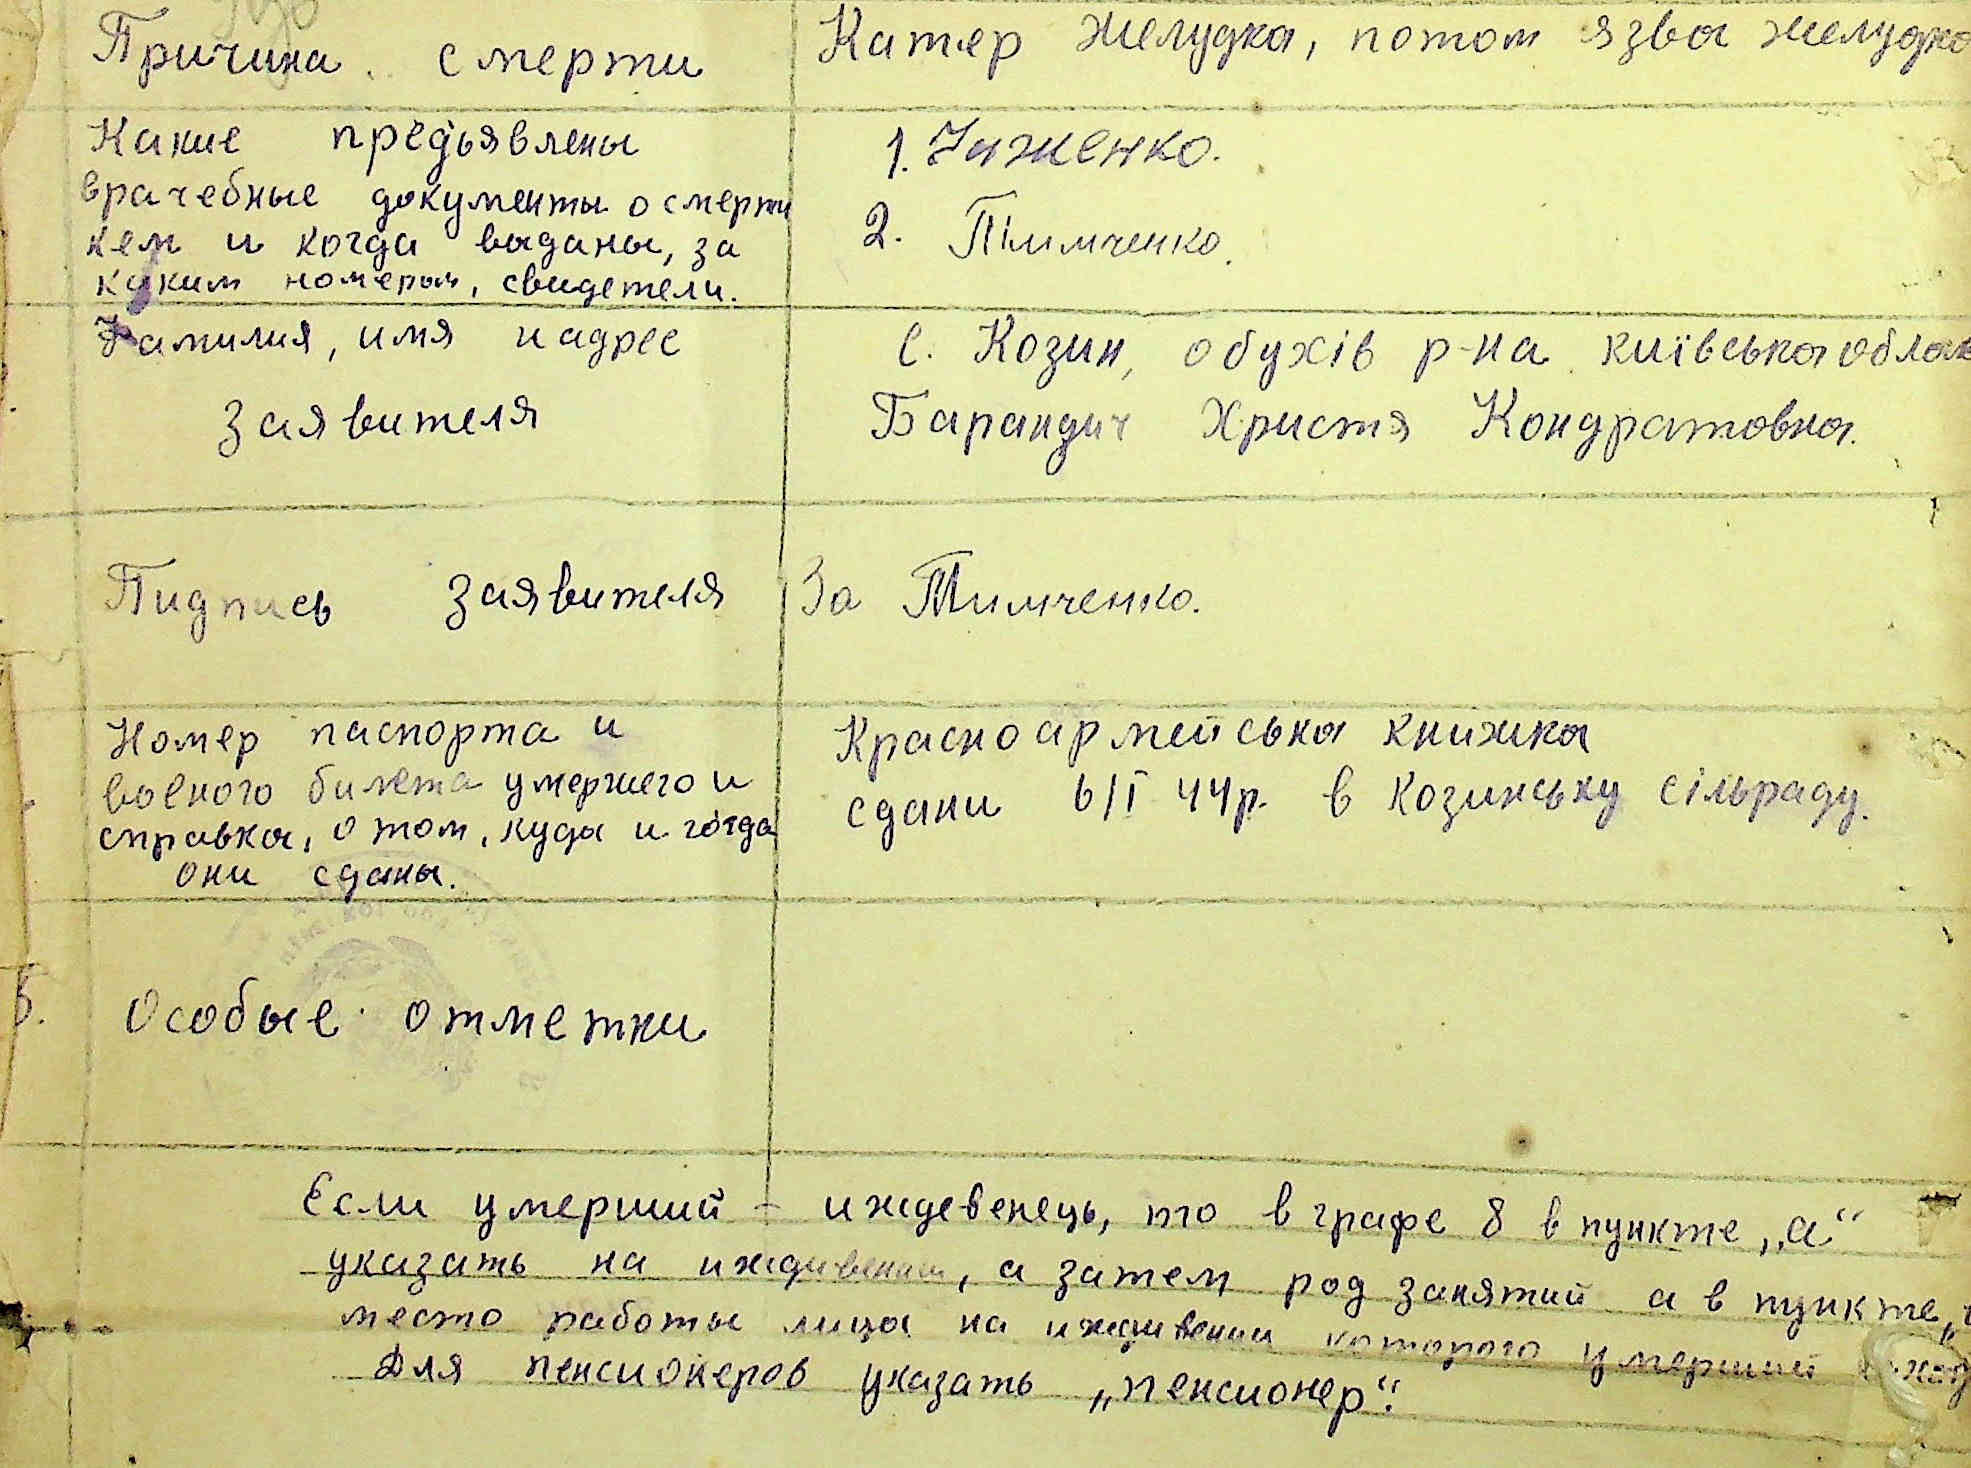 Причина смерти
Катер желудка, потом язва желудка
Какие предъявлены
врачебные документы о смерти
кем и когда выданы, за
каким номером, свидетели.
1. Чаженко.
2. Тимченко.
Фамилия, имя и адрес
заявителя
С. Козин, обухів р-на київська облас
Барандич Христя Кондратовна.
Пидпись заявителя
За Тимченко.
Номер паспорта и
военого билета умершего и
справка, о том, куда и гогда
они сданы.
Красноармейська книжка
сдани 6/I 44р. в Козинську сільраду.
5. Особые отметки
Если умерший - иждевенець, то в графе 8 в пункте „а“
указать на иждивении, а затем род занятий а в пункте
место работы лица на иждивении которого умерший
Для пенсионеров указать „пенсионер“.